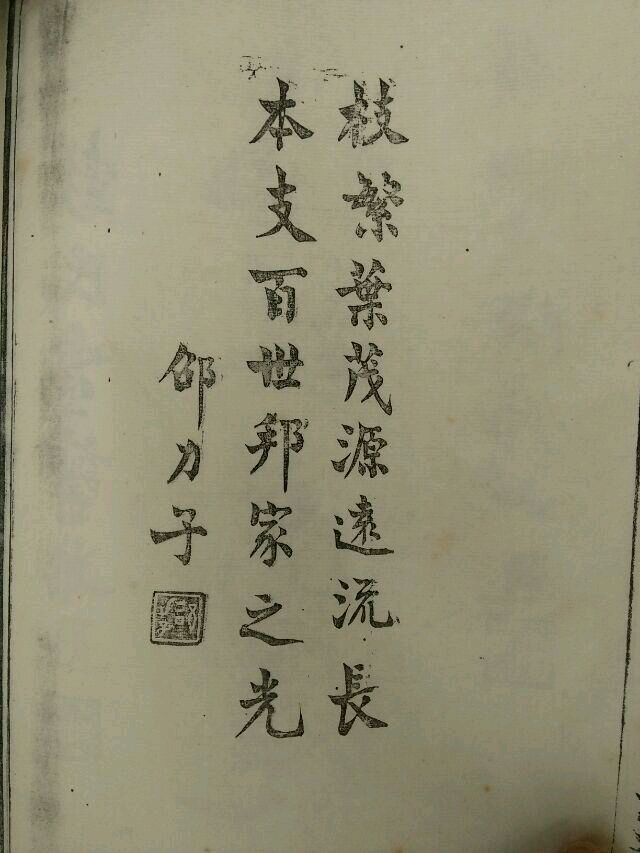 枝繁葉茂源遠流長
本支百世邦家之光
邵力子